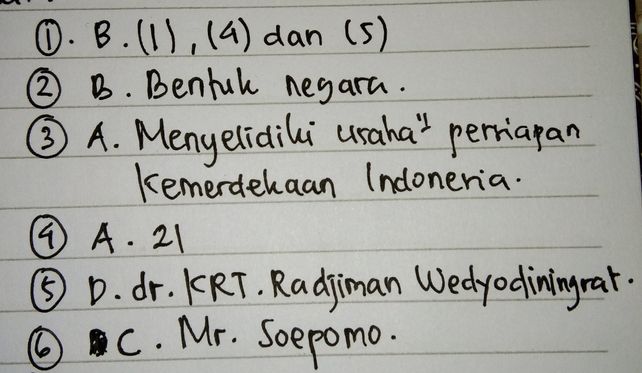 ①. B. (1), (4) dan (5)
② B. Bentuk negara.
③ A. Menyelidiki usaha" persiapan
Kemerdekaan Indonesia.
④ A. 21
⑤ D. dr. KRT. Radjiman Wedyodiningrat.
⑥ C. Mr. Soepomo.